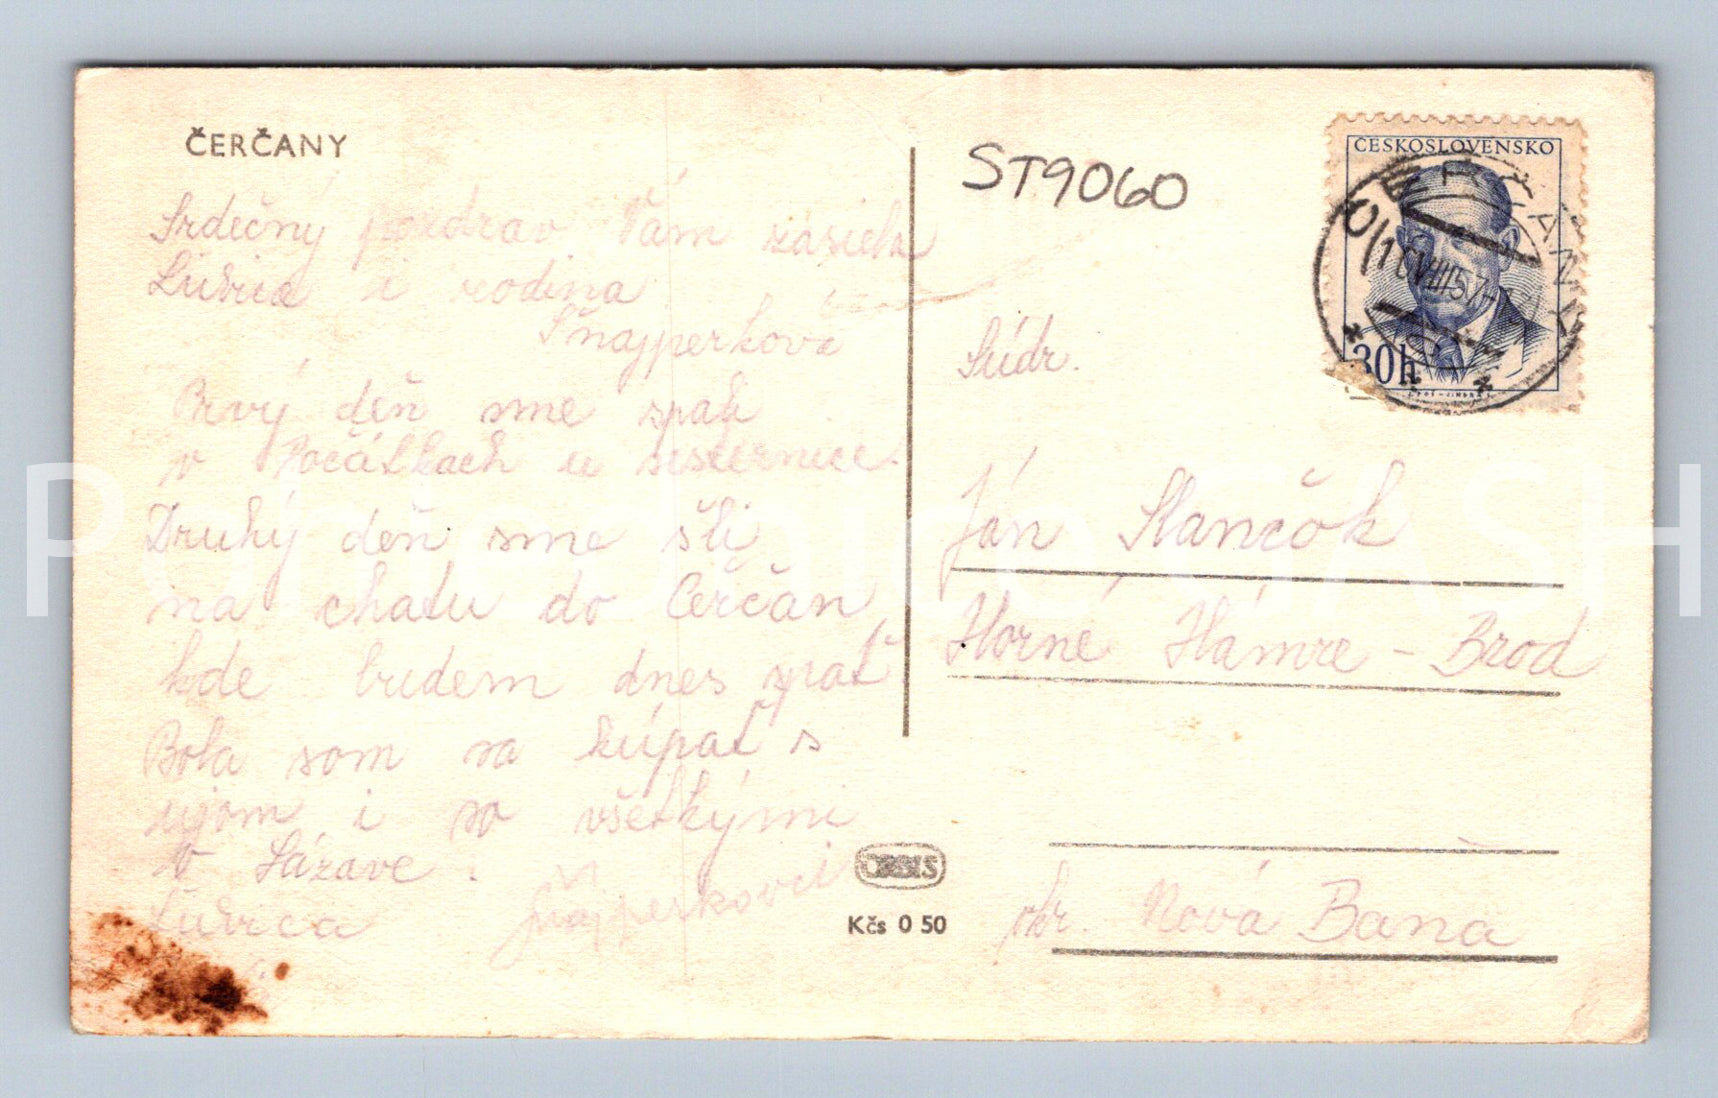 ČERČANY
Srdečný pozdrav Vám zasiela
Ľudvica i rodina
Šnajperkova
Prvý deň sme spali
v Počátkach u sesternice.
Druhý deň sme šli
na chatu do Čerčan
kde budem dnes spať.
Bola som sa kúpať s
ujom i so všetkými
v Sázave.
Šnajperkovci
ORBIS
Kčs 0 50
ST9060
ČESKOSLOVENSKO
30h
ČERČANY
Súdr.
Ján Slančok
Horné Hámre - Brod
okr. Nová Baňa